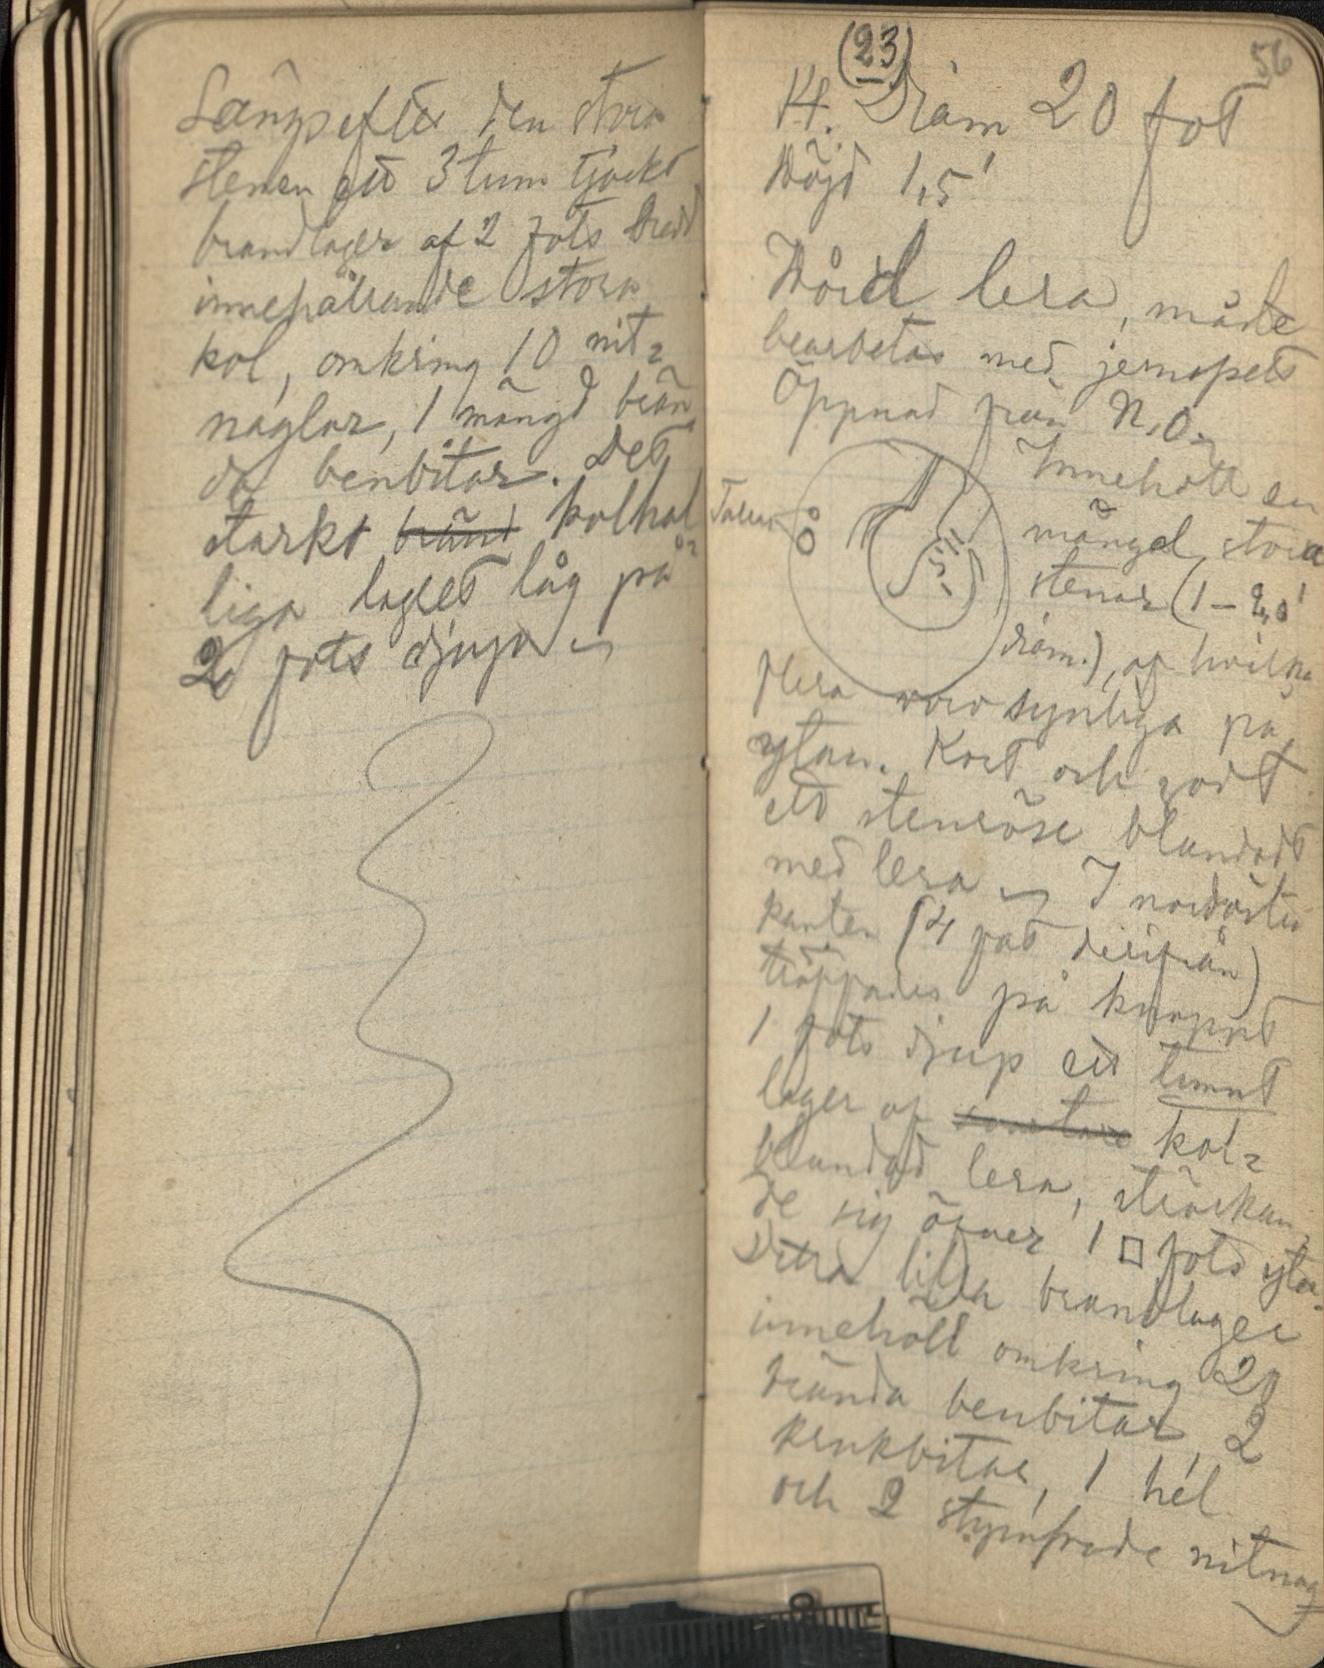 Långsefter den stora
stenen ett 3 tum tjockt
brandlager af 2 fots bredd
innehållande stora
kol, omkring 10 nit=
naglar, 1 mängd brän
da benbitar. Det
starkt bränd kolhal
liga lagret låg på
2 fots djup
(23)
56
14. Diam 20 fot
Höjd 1,5'
Hård lera, måste
bearbetas med jernspett
Öppnad från N.O.
Innehöll en
mängd stora
stenar (1 – 2,0'
diam.), af hvilka
flera voro synliga på
ytan. Kort och godt
ett stenröse blandadt
med lera I nordöstra
kanten (4 fot derifrån)
träffades på knappt
1 fots djup ett tunnt
lager af kol=
blandad lera, sträckan
de sig öfver 1 □ fots yta.
Detta lilla brandlager
innehöll omkring 20
brända benbitar, 2
krukbitar, 1 hel
och 2 stympade nitnag